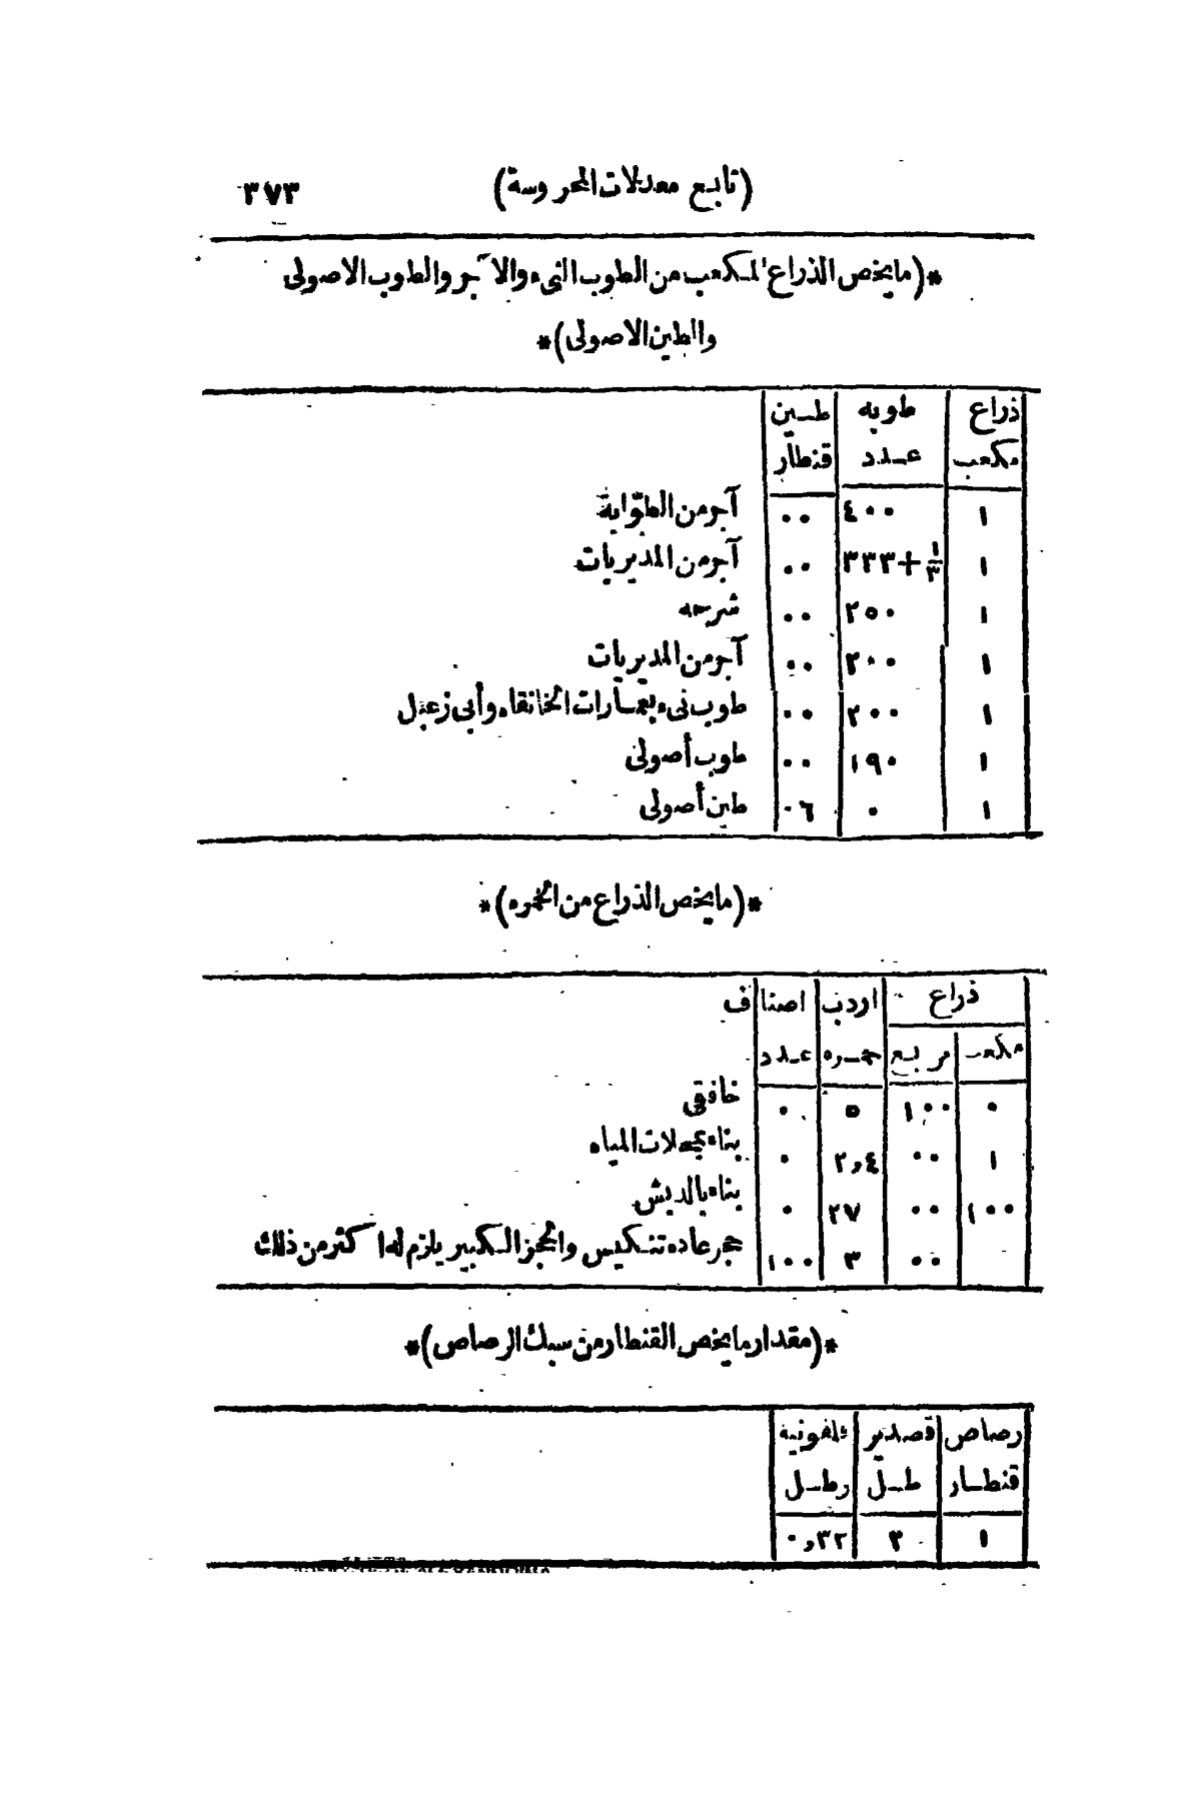 (تابع معدلات المحروسة) ٣٧٣
*(ما يخص الذراع المكعب من الطوب النىء والآجر والطوب الاصولى
والطين الاصولى)*
ذراع طوبه طين
مكعب عدد قنطار
١ ٤٠٠ ٠٠ آجر من الطوابة
١ ٣٣٣+١/٣ ٠٠ آجر من المديريات
١ ٢٥٠ ٠٠ شرحه
١ ٢٠٠ ٠٠ آجر من المديريات
١ ٢٠٠ ٠٠ طوب نىء بعمارات الخانقاه وأبى زعبل
١ ١٩٠ ٠٠ طوب أصولى
١ ٠ ٠٦ طين أصولى
*(ما يخص الذراع من الخمره)*
ذراع اردب اصناف
مكعب مربع خمره عدد
٠ ١٠٠ ٥ ٠ خافقى
١ ٠٠ ٢,٤ ٠ بناء بمحلات المياه
١٠٠ ٠٠ ٢٧ ٠ بناء بالدبش
٠٠ ٣ ١٠٠ حجر عاده تنكيس والحجز الكبير يلزم له اكثر من ذلك
*(مقدار ما يخص القنطار من سبك الرصاص)*
رصاص قصدير قلفونية
قنطار طل رطل
١ ٢ ٠,٣٢